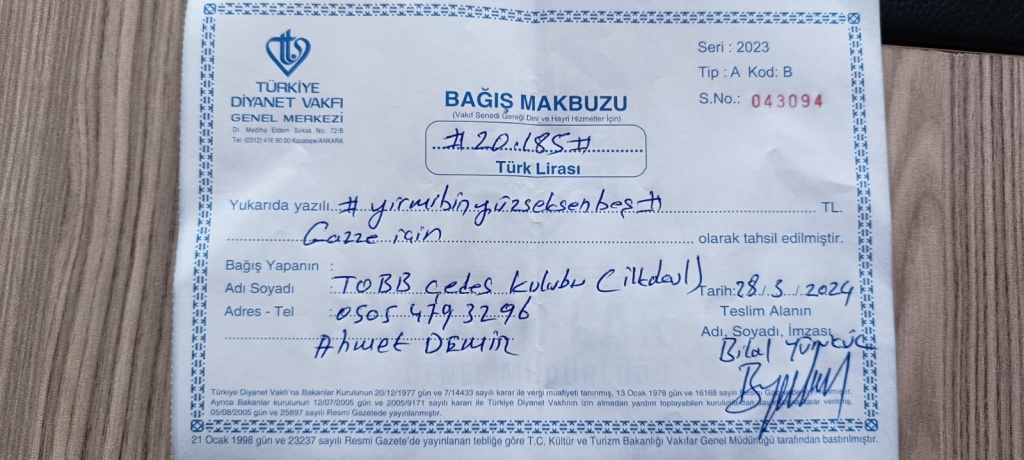 TÜRKİYE
DİYANET VAKFI
GENEL MERKEZİ
Dr. Mediha Eldem Sokak No. 72/B
Tel: (0312) 416 90 00 Kocatepe/ANKARA
Seri : 2023
Tip : A Kod: B
S.No.: 043094
BAĞIŞ MAKBUZU
(Vakıf Senedi Gereği Dini ve Hayri Hizmetler İçin)
#20.185#
Türk Lirası
Yukarıda yazılı #yirmibinyüzseksenbeş# TL.
Gazze için olarak tahsil edilmiştir.
Bağış Yapanın :
Adı Soyadı : TOBB çedes kulubu (ilkokul)
Adres - Tel : 0505 479 32 96
Ahmet DEMİR
Tarih: 28/5/2024
Teslim Alanın
Adı, Soyadı, İmzası
Bilal
Türkiye Diyanet Vakfı'na Bakanlar Kurulunun 20/12/1977 gün ve 7/14433 sayılı karar ile vergi muafiyeti tanınmış, 13 Ocak 1978 gün ve 16168 sayılı Resmi
Ayrıca Bakanlar Kurulunun 12/07/2005 gün ve 2005/9171 sayılı kararı ile Türkiye Diyanet Vakfının izin almadan yardım toplayabilen karar verilmiş,
05/08/2005 gün ve 25897 sayılı Resmi Gazetede yayınlanmıştır.
21 Ocak 1998 gün ve 23237 sayılı Resmi Gazete'de yayınlanan tebliğe göre T.C. Kültür ve Turizm Bakanlığı Vakıflar Genel Müdürlüğü tarafından bastırılmıştır.